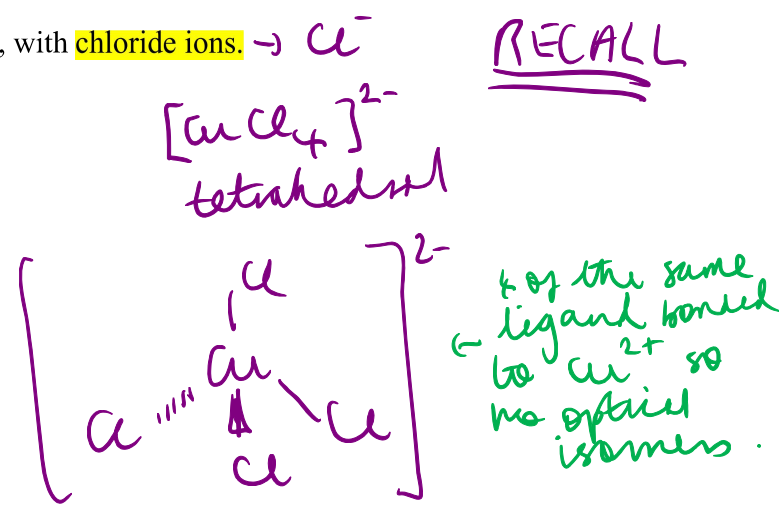 , with chloride ions. → Cl⁻
RECALL
[CuCl₄]²⁻
tetrahedral
[ ]²⁻
Cl
Cu
Cl
Cl
Cl
4 of the same
ligand bonded
to Cu²⁺ so
no optical
isomers.